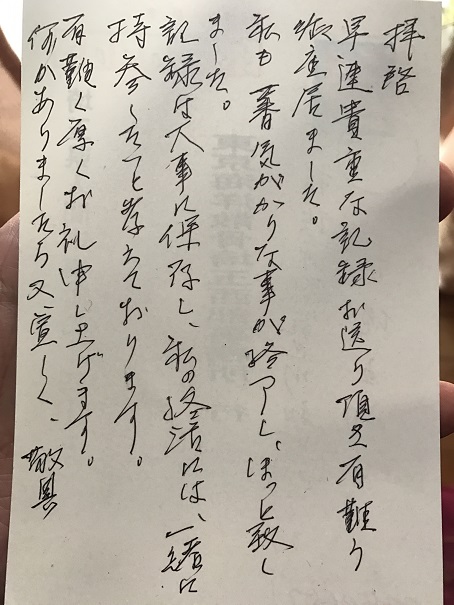 拝啓
早速貴重な記録お送り頂き有難う
御座居ました。
私も一番気がかりな事が終了し、ほっと致し
ました。
記録は大事に保存し、私の終活には、一緒に
持参したいと考えております。
有難く厚くお礼申し上げます。
何かありましたら又宜しく、 敬具